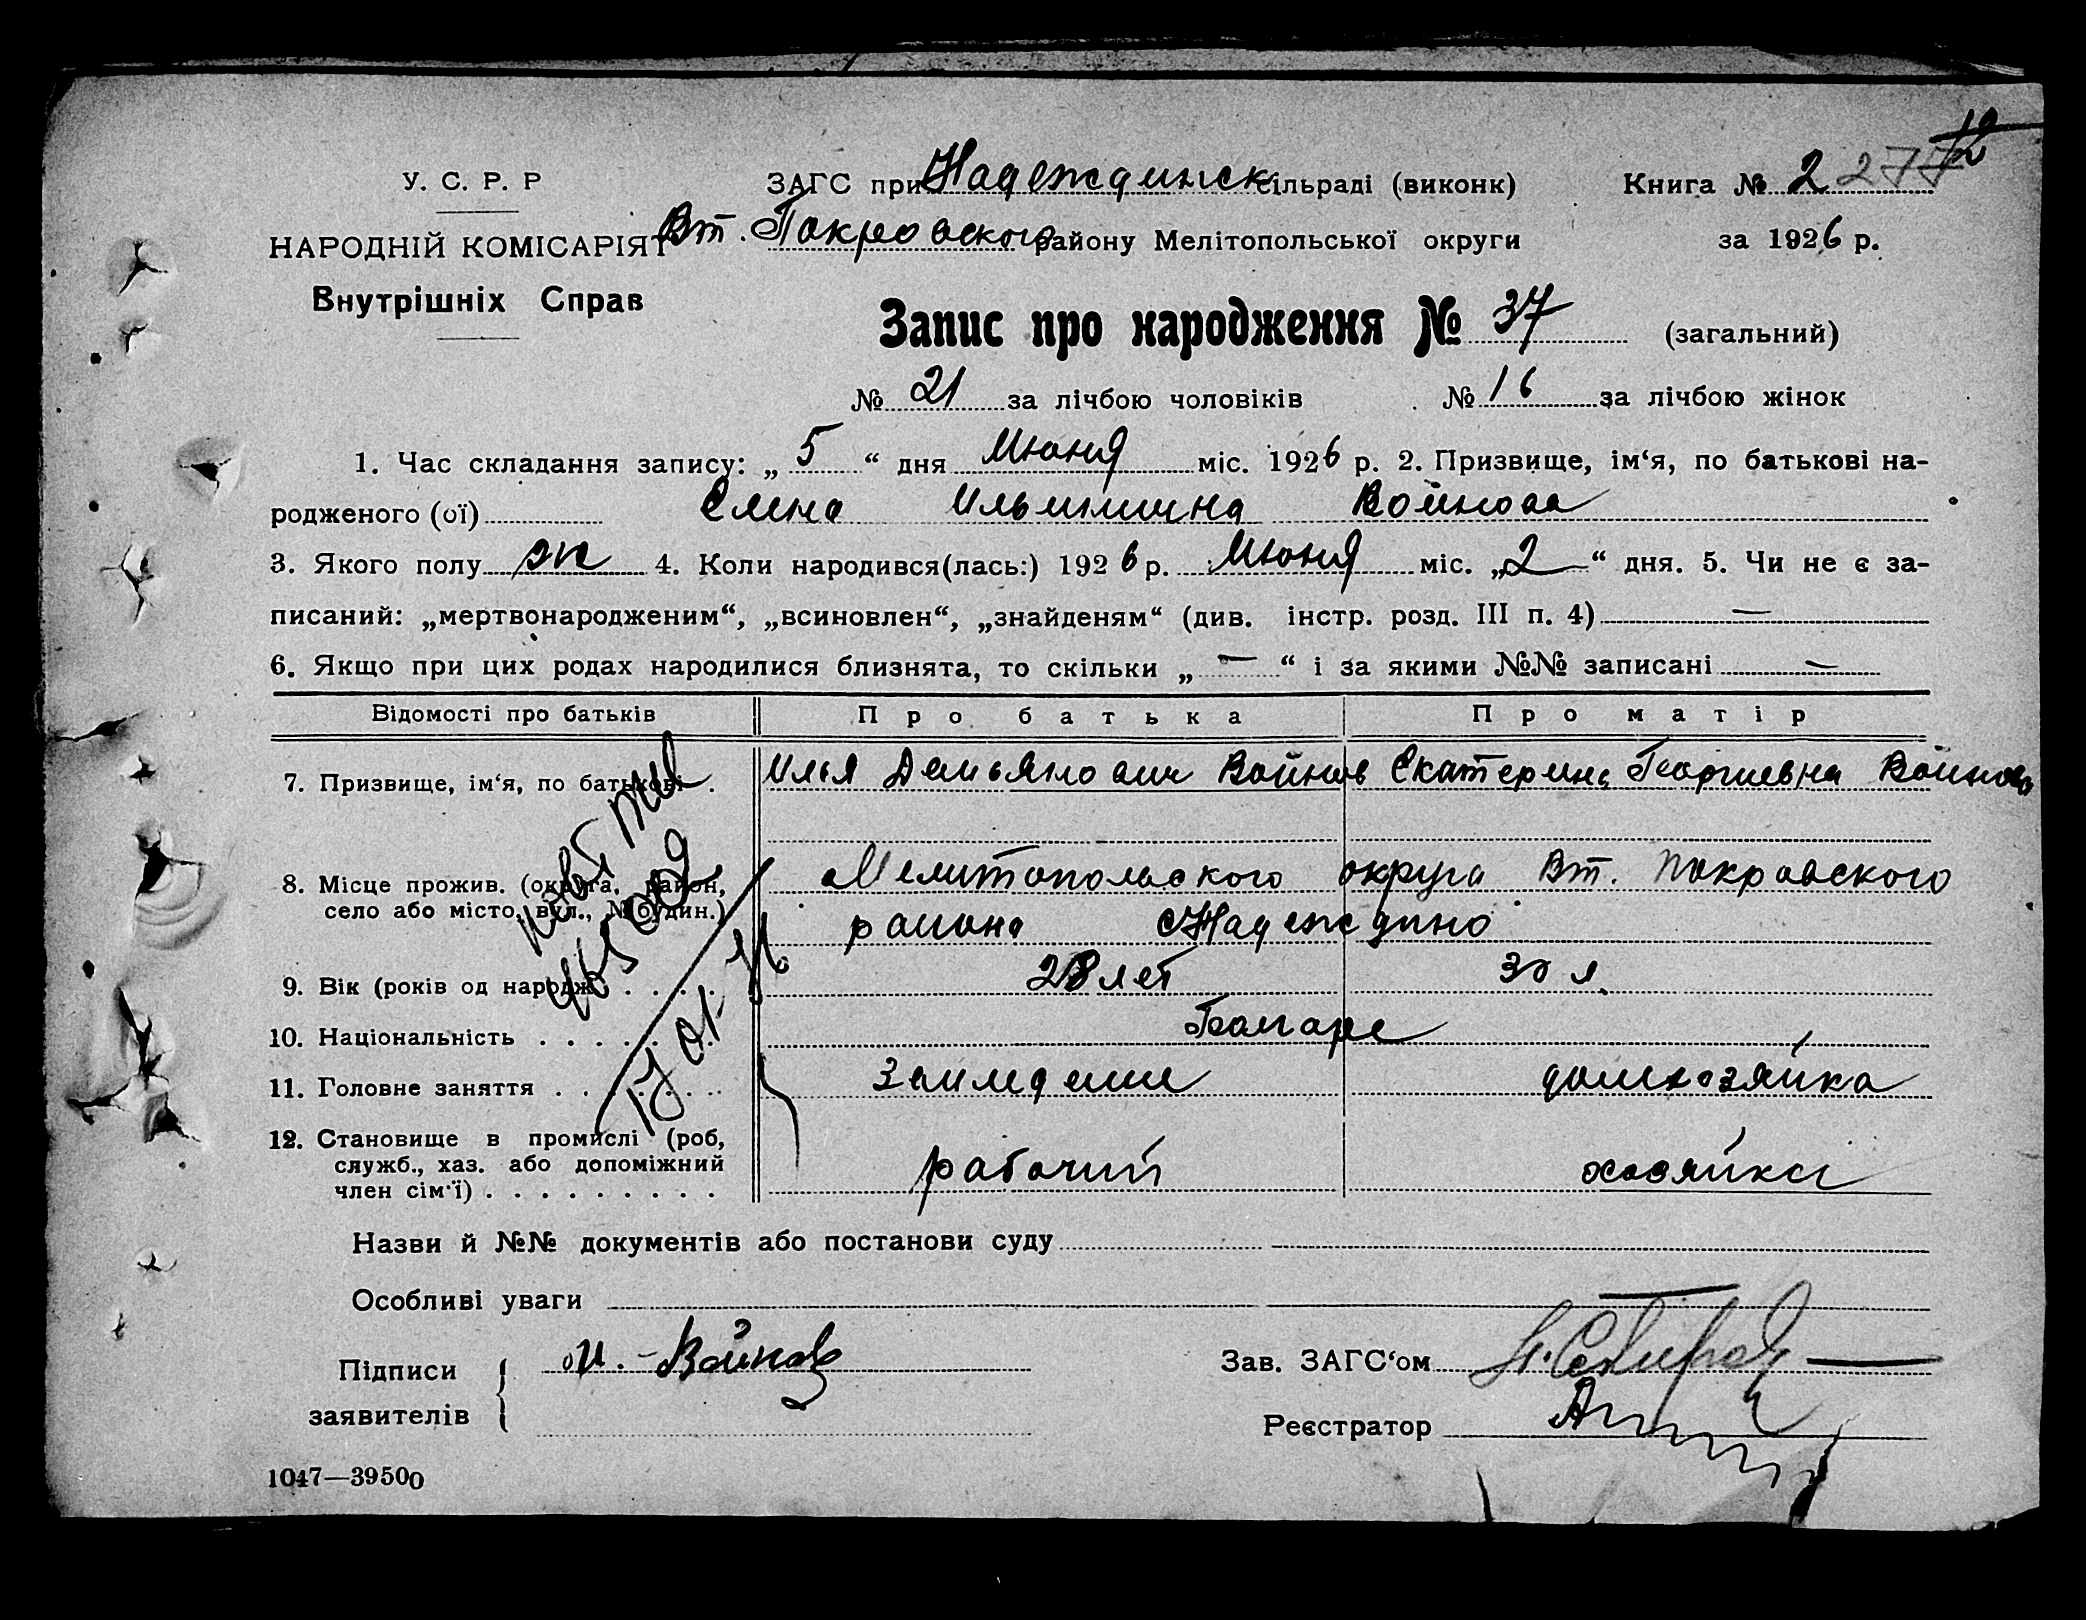 У. С. Р. Р
НАРОДНІЙ КОМІСАРІЯТ
Внутрішніх Справ
ЗАГС при Надеждинск сільраді (виконк)
Вт. Покровского району Мелітопольської округи
Книга № 2 277
12
за 1926 р.
Запис про народження № 37 (загальний)
№ 21 за лічбою чоловіків № 16 за лічбою жінок
1. Час складання запису: „5“ дня Июня міс. 1926 р. 2. Призвище, ім‘я, по батькові на-
родженого (ої) Елена Ильинична Войнова
3. Якого полу ж 4. Коли народився(лась:) 1926 р. Июня міс. „2“ дня. 5. Чи не є за-
писаний: „мертвонародженим“, „всиновлен“, „знайденям“ (див. інстр. розд. III п. 4) —
6. Якщо при цих родах народилися близнята, то скільки „—“ і за якими №№ записані —
Відомості про батьків Про батька Про матір
7. Призвище, ім‘я, по батькові . Илья Демьянович Войнов Екатерина Георгиевна Войнова
8. Місце прожив. (округа, район, Мелитопольского округа Вт. Покровского
село або місто, вул., № будин.) района Надеждино
9. Вік (років од народж. . . . . 28 лет 30 л.
10. Національність . . . . . . Болгаре
11. Головне заняття . . . . . . . Земледелие домхозяйка
12. Становище в промислі (роб,
служб., хаз. або допоміжний рабочий хозяйка
член сім‘ї) . . . . . . . . .
17 01
Назви й №№ документів або постанови суду
Особливі уваги
Підписи И. Войнов
заявителів
Зав. ЗАГС‘ом
Реєстратор
1047—39500